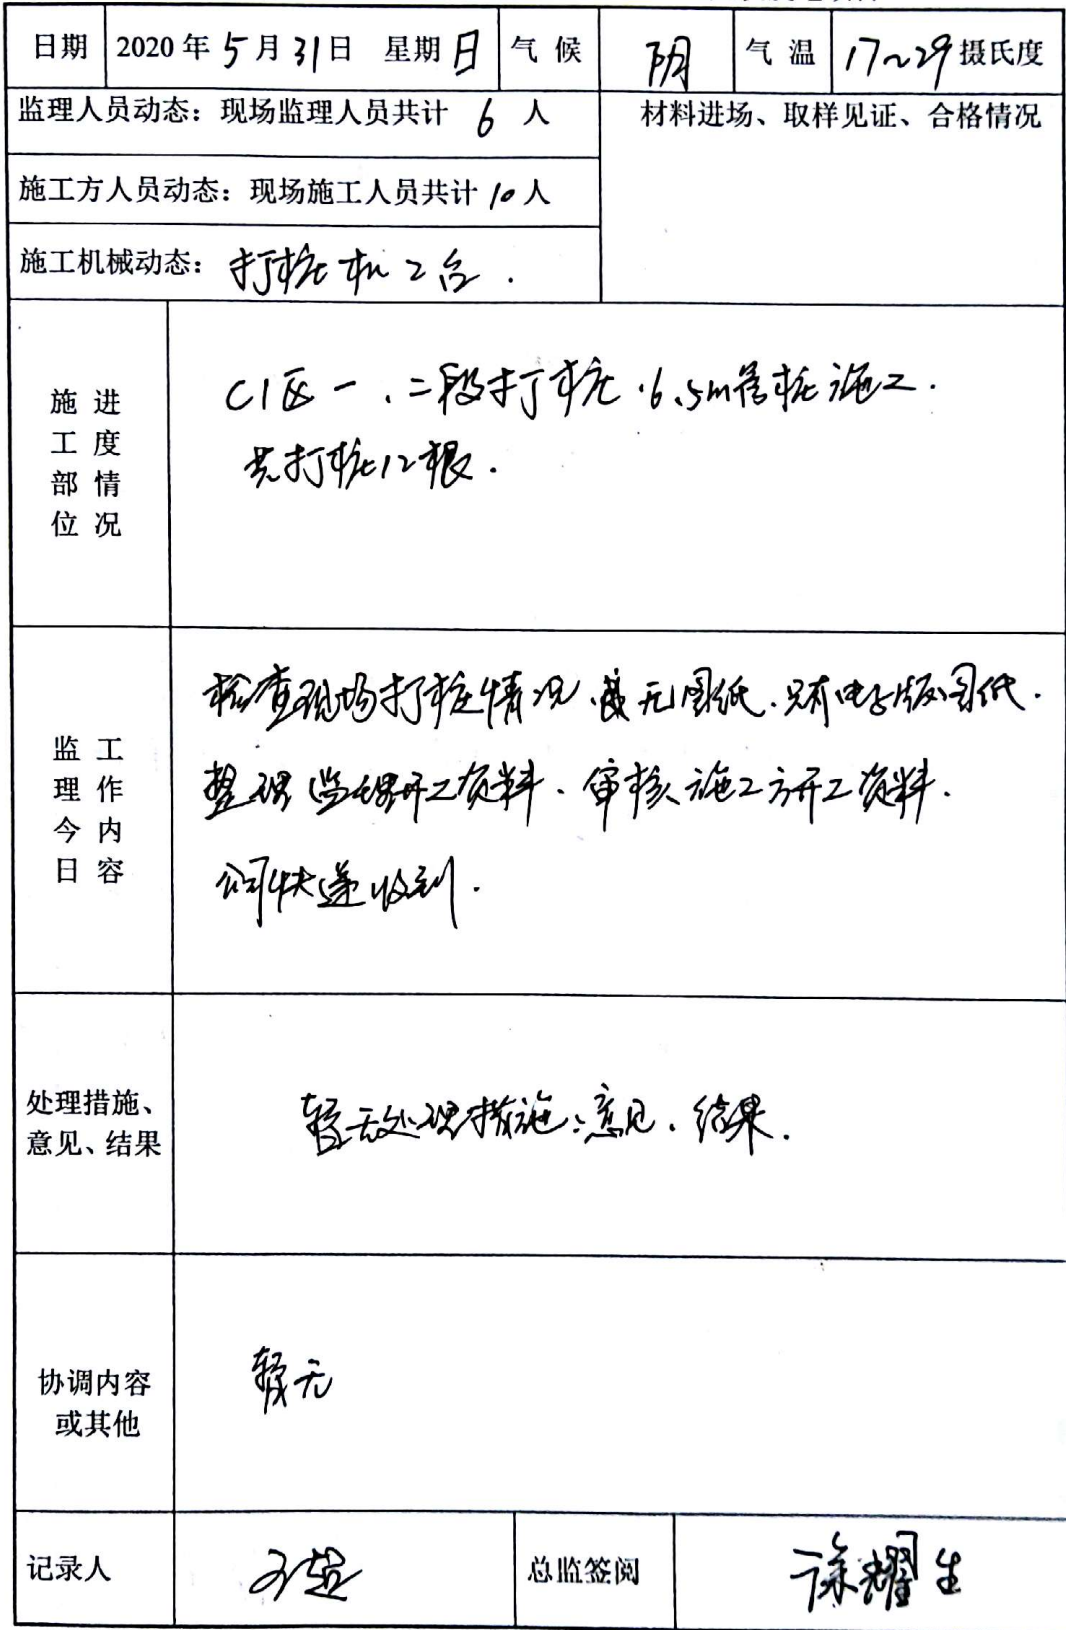 日期 2020年5月31日 星期日 气候 阴 气温 17~29摄氏度
监理人员动态：现场监理人员共计 6 人
材料进场、取样见证、合格情况
施工方人员动态：现场施工人员共计10人
施工机械动态：打桩机2台.
施工部位 进度情况
C1区一、二段打桩.6.5m管桩施工.
共打桩12根.
监理今日 工作内容
检查现场打桩情况 无图纸.只有电子版图纸.
整理监理开工资料、审核施工方开工资料.
公司快递收到.
处理措施、
意见、结果
暂无处理措施、意见、结果.
协调内容
或其他
暂无
记录人 总监签阅 徐耀生